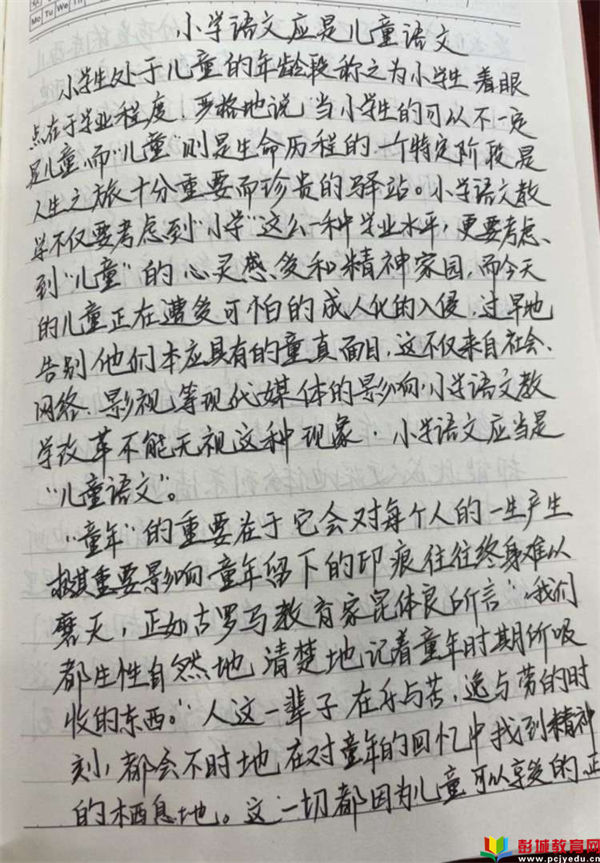 Mo Tu We Th
小学语文应是儿童语文
小学生处于儿童的年龄段称之为小学生着眼
点在于学业程度,严格地说当小学生的可以不一定
是儿童,而“儿童”则是生命历程的一个特定阶段是
人生之旅十分重要而珍贵的驿站。小学语文教
学不仅要考虑到“小学”这么一种学业水平,更要考虑
到“儿童”的心灵感受和精神家园,而今天
的儿童正在遭受可怕的成人化的入侵,过早地
告别他们本应具有的童真面目,这不仅来自社会、
网络、影视等现代媒体的影响,小学语文教
学改革不能无视这种现象,小学语文应当是
“儿童语文”。
“童年”的重要在于它会对每个人的一生产生
极其重要影响童年留下的印痕往往终身难以
磨灭,正如古罗马教育家昆体良所言“我们
都生性自然地,清楚地记着童年时期所吸
收的东西。”人这一辈子在乐与苦,逸与劳的时
刻,都会不时地在对童年的回忆中找到精神
的栖息地。这一切都因为儿童可以享受的、正
彭城教育网
www.pcjyedu.cn